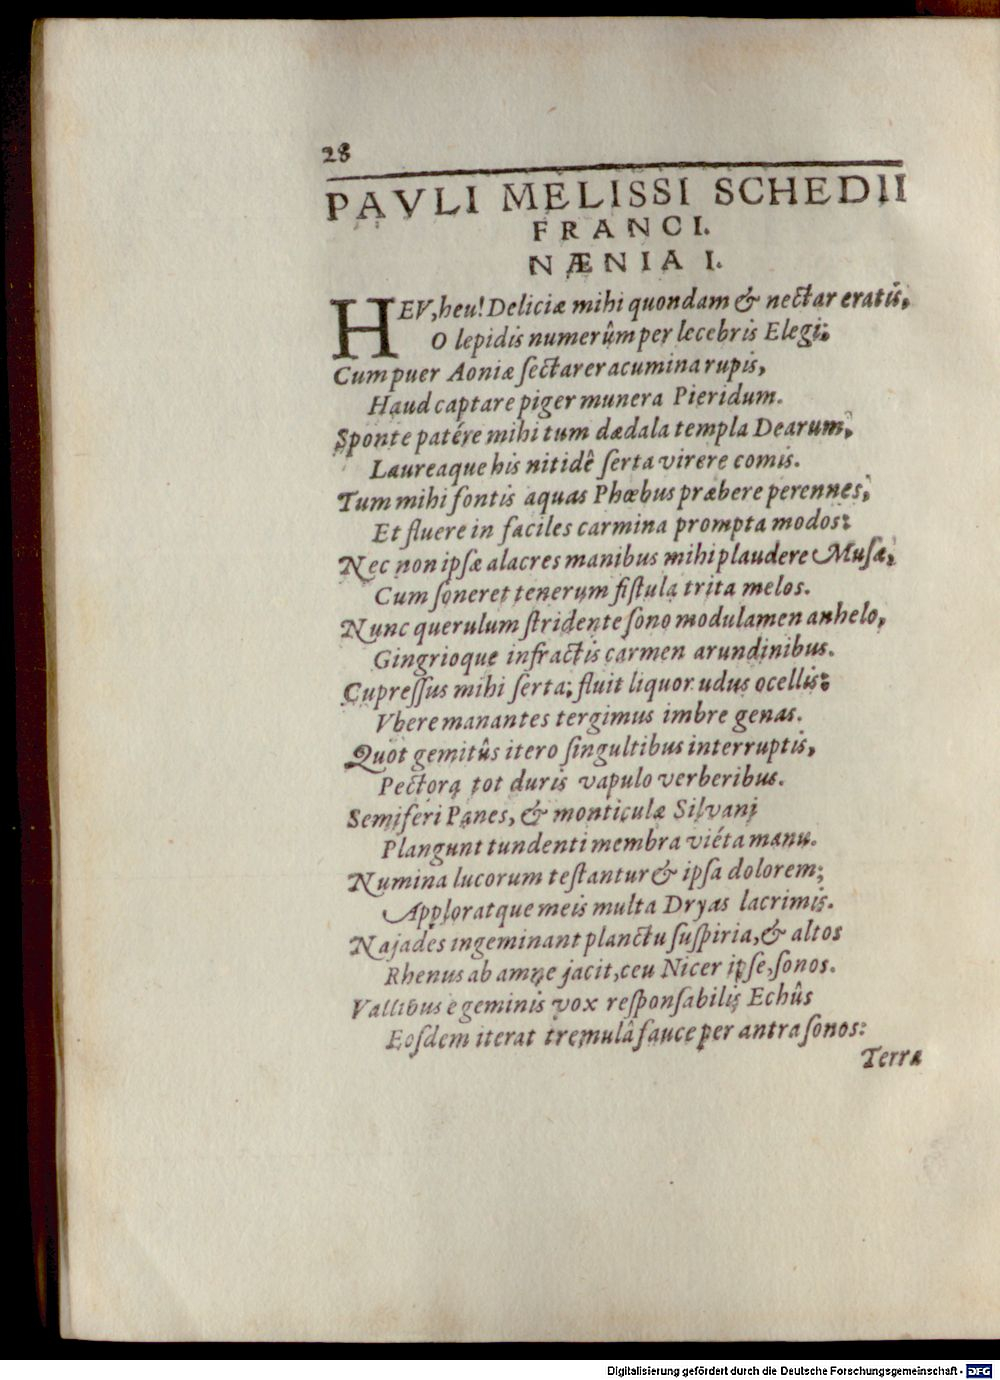 28
PAVLI MELISSI SCHEDII
FRANCI.
NÆNIA I.
HEV, heu! Deliciæ mihi quondam & nectar eratis,
O lepidis numerûm per lecebris Elegi;
Cum puer Aoniæ ſectarer acumina rupis,
Haud captare piger munera Pieridum.
Sponte patére mihi tum dædala templa Dearum,
Laureaque his nitidê ſerta virere comis.
Tum mihi fontis aquas Phœbus præbere perennes,
Et fluere in faciles carmina prompta modos:
Nec non ipſæ alacres manibus mihi plaudere Muſæ,
Cum ſoneret tenerum fiſtula trita melos.
Nunc querulum ſtridente ſono modulamen anhelo,
Gingrioque infractis carmen arundinibus.
Cupreſſus mihi ſerta; fluit liquor udus ocellis:
Vbere manantes tergimus imbre genas.
Quot gemitûs itero ſingultibus interruptis,
Pectora tot duris vapulo verberibus.
Semiferi Panes, & monticulæ Silvani
Plangunt tundenti membra viéta manu.
Numina lucorum teſtantur & ipſa dolorem;
Apploratque meis multa Dryas lacrimis.
Najades ingeminant planctu ſuſpiria, & altos
Rhenus ab amne jacit, ceu Nicer ipſe, ſonos.
Vallibus e geminis vox reſponſabilis Echûs
Eoſdem iterat tremulâ fauce per antra ſonos:
Terra
Digitalisierung gefördert durch die Deutsche Forschungsgemeinschaft - DFG